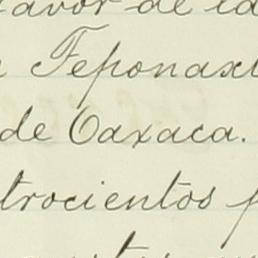 favor de la
Teponaxt
de Oaxaca.
trocientos